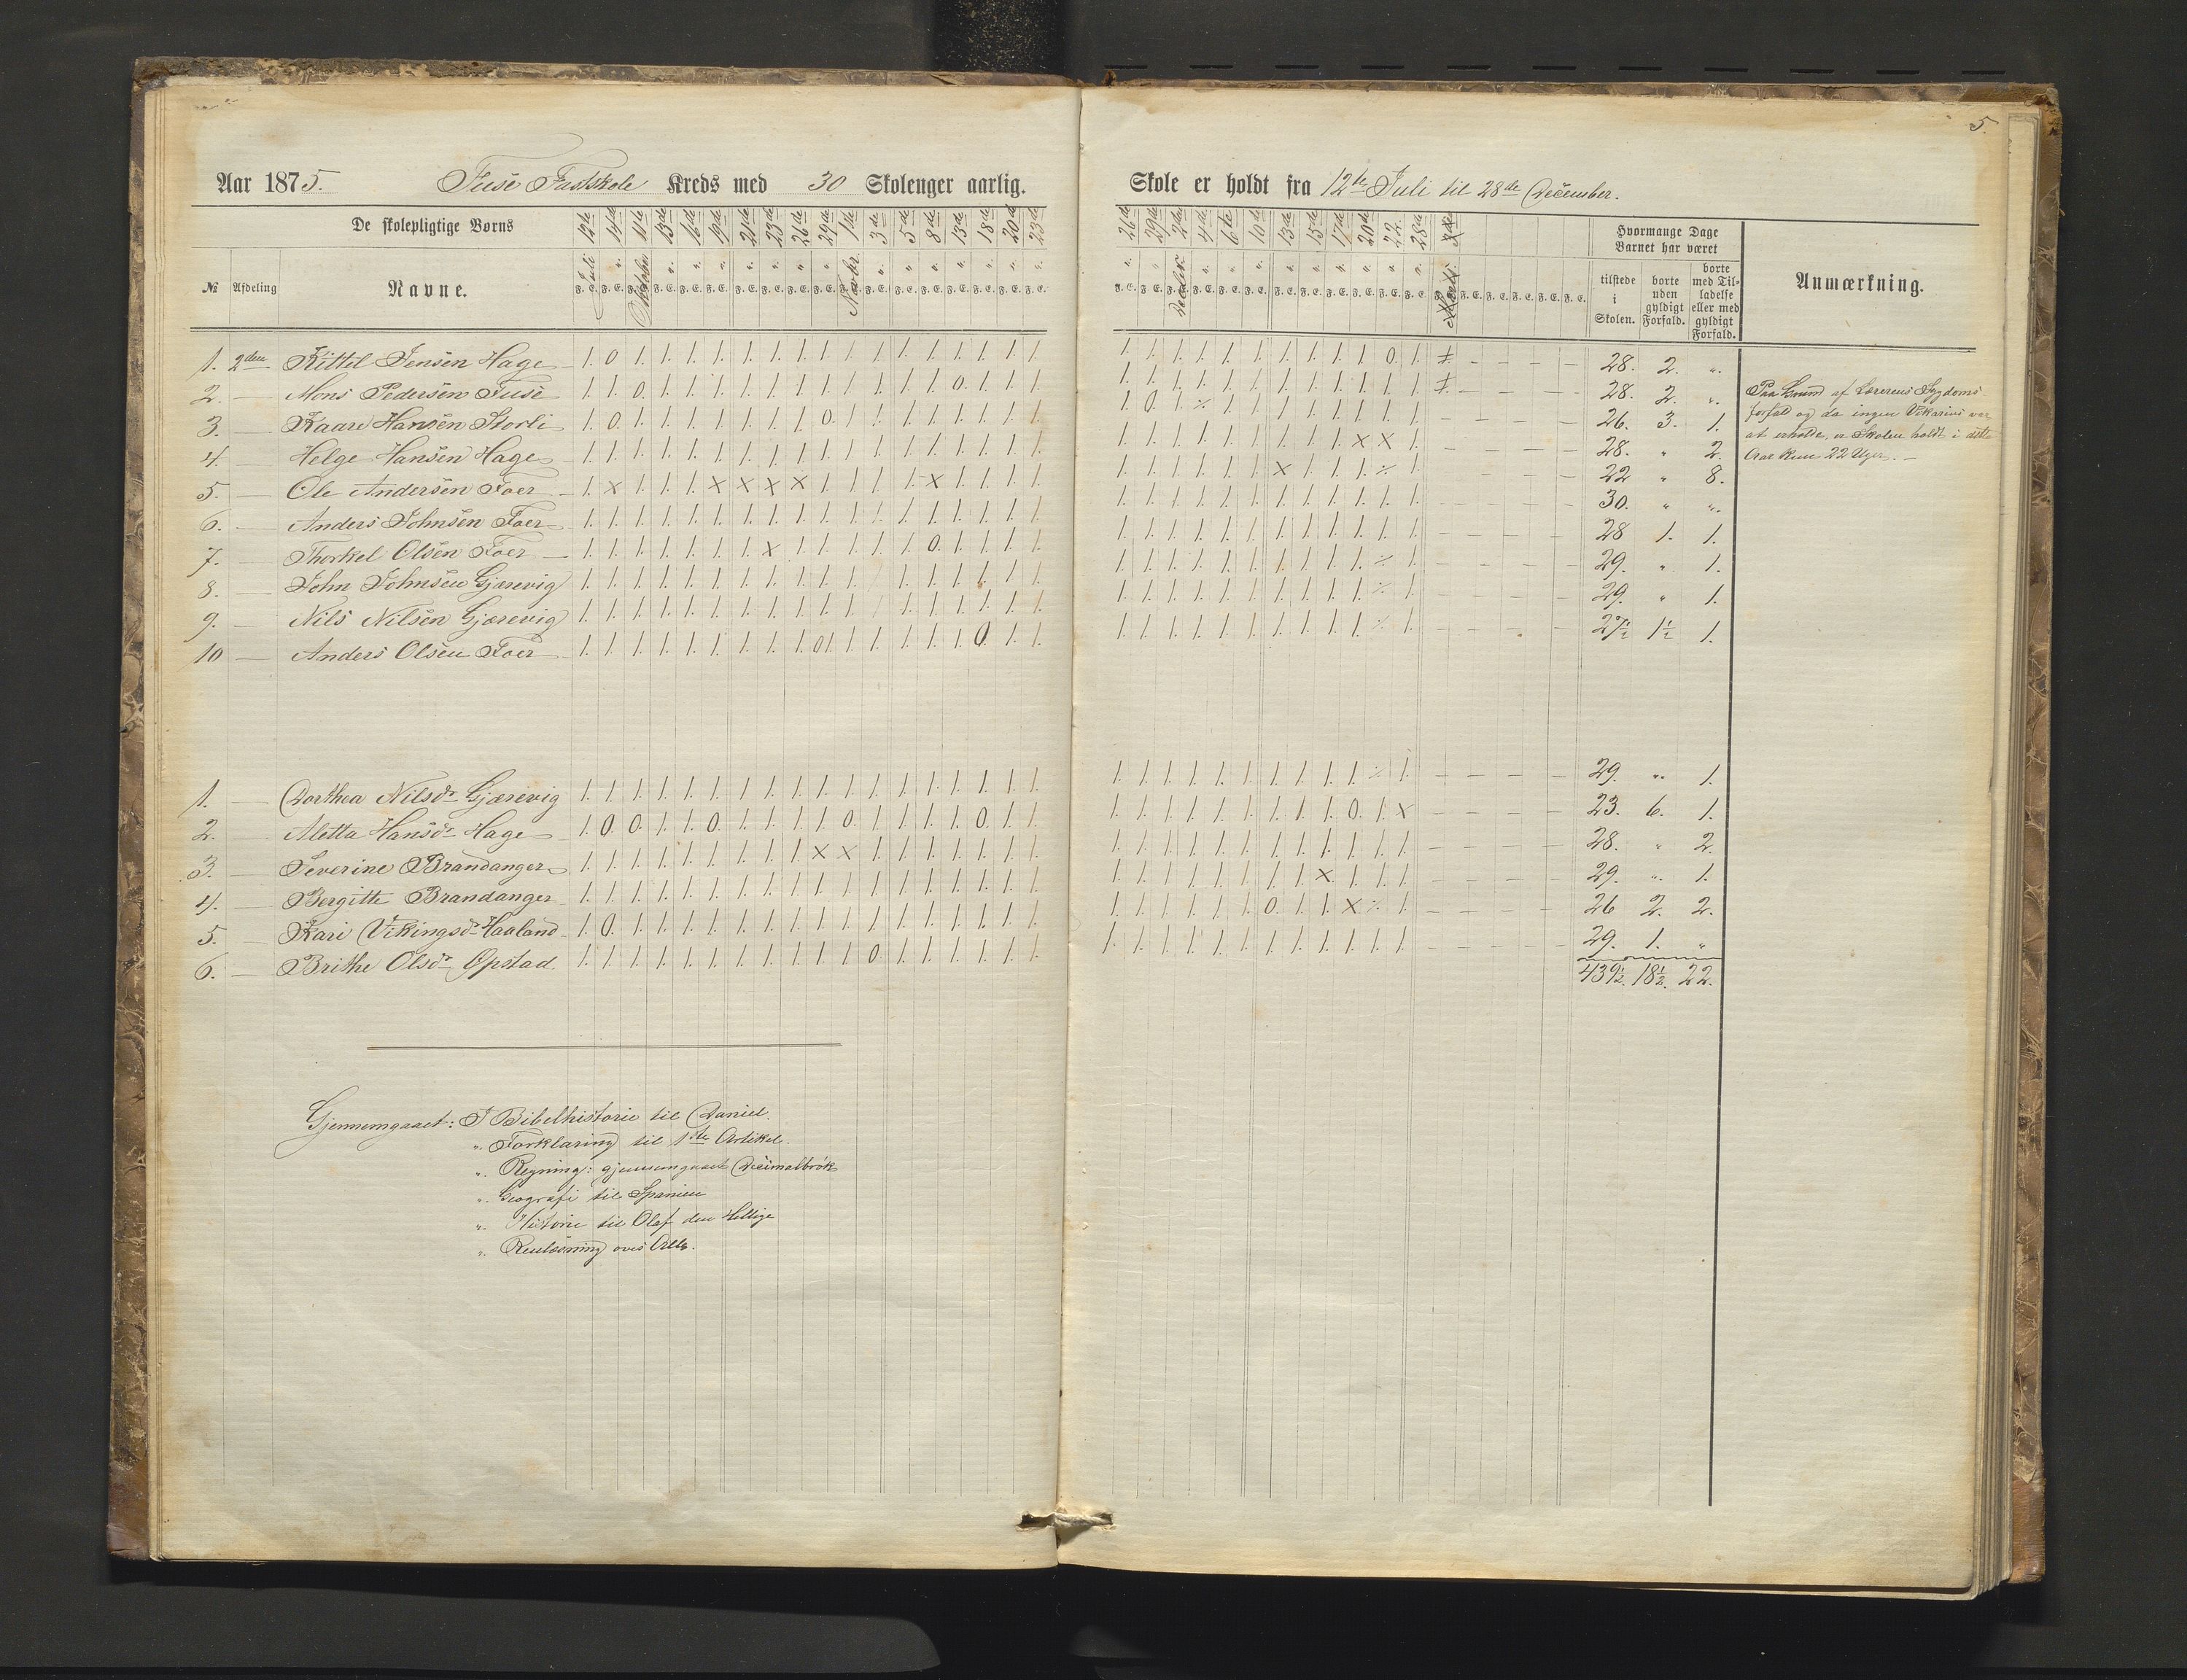 5.
Aar 1875. Fuse Fastskole Kreds med 30 Skoleuger aarlig.
Skole er holdt fra 12te Juli til 28de December.
De skolepligtige Børns
12te 14de 11te 13de 16de 19de 21de 23de 26de 29de 1ste 3de 5te 8de 13de 18de 20de 23de
26de 29de 2den 4de 6te 10de 13de 15de 17de 20de 22. 28de
Hvormange Dage Barnet har været
№ Afdeling Navne.
Juli Oktober Novbr. Decbr.
F. E.
tilstede i Skolen.
borte uden gyldigt Forfald.
borte med Tilladelse eller med gyldigt Forfald.
Anmærkning.
1. 2den Kittil Jensen Hage 1. 0 1. 1. 1. 1. 1. 1. 1. 1. 1. 1. 1. 1. 1. 1. 1. 1. 1. 1. 1. 1. 1. 1. 1. 1. 1. 1. 0. 1. 28. 2. "
2. — Mons Pedersen Fuse 1. 1. 0. 1. 1. 1. 1. 1. 1. 1. 1. 1. 1. 1. 0. 1. 1. 1. 1. 1. 1. 1. 1. 1. 1. 1. 1. 1. 1. 1. 28. 2. "
3. — Kaare Hansen Storli 1. 0. 1. 1. 1. 1. 1. 1. 1. 0. 1. 1. 1. 1. 1. 1. 1. 1. 1. 0. 1. ⁒ 1. 1. 1. 1. 1. 1. 1. 1. 26. 3. 1.
4. — Helge Hansen Hage 1. 1. 1. 1. 1. 1. 1. 1. 1. 1. 1. 1. 1. 1. 1. 1. 1. 1. 1. 1. 1. 1. 1. 1. 1. 1. 1. X X 1. 28. " 2.
5. — Ole Andersen Foer 1. X 1. 1. 1. X X X X 1. 1. 1. 1. X 1. 1. 1. 1. 1. 1. 1. 1. 1. 1. X 1. 1. 1. ⁒ 1. 22 " 8.
6. — Anders Johnsen Foer 1. 1. 1. 1. 1. 1. 1. 1. 1. 1. 1. 1. 1. 1. 1. 1. 1. 1. 1. 1. 1. 1. 1. 1. 1. 1. 1. 1. 1. 1. 30. " "
7. — Thorkel Olsen Foer 1. 1. 1. 1. 1. 1. 1. X 1. 1. 1. 1. 1. 0. 1. 1. 1. 1. 1. 1. 1. 1. 1. 1. 1. 1. 1. 1. 1. 1. 28 1. 1.
8. — John Johnsen Gjærevig 1. 1. 1. 1. 1. 1. 1. 1. 1. 1. 1. 1. 1. 1. 1. 1. 1. 1. 1. 1. 1. 1. 1. 1. 1. 1. 1. 1. ⁒ 1. 29. " 1.
9. — Nils Nilsen Gjærevig 1. 1. 1. 1. 1. 1. 1. 1. 1. 1. 1. 1. 1. 1. 1. 1. 1. 1. 1. 1. 1. 1. 1. 1. 1. 1. 1. 1. ⁒ 1. 29. " 1.
10 — Anders Olsen Foer 1. 1. 1. 1. 1. 1. 1. 1. 1. 01. 1. 1. 1. 1. 1. 0. 1. 1. 1. 1. 1. 1. 1. 1. 1. 1. 1. 1. ⁒ 1. 27½ 1½ 1.
Paa Grund af Lærerens Sygdoms-
forfald og da ingen Vikarius var
at erholde, er Skolen holdt i dette
Aar kun 22 Uger. —
1. — Dorthea Nilsdr. Gjærevig 1. 1. 1. 1. 1. 1. 1. 1. 1. 1. 1. 1. 1. 1. 1. 1. 1. 1. 1. 1. 1. 1. 1. 1. 1. 1. 1. 1. ⁒ 1. 29. " 1.
2. — Aletta Hansdr. Hage 1. 0. 0. 1. 1. 0. 1. 1. 1. 1. 0. 1. 1. 1. 1. 0. 1. 1. 1. 1. 1. 1. 1. 1. 1. 1. 1. 0. 1. X 23. 6. 1.
3. — Severine Brandanger 1. 1. 1. 1. 1. 1. 1. 1. 1. X X 1. 1. 1. 1. 1. 1. 1. 1. 1. 1. 1. 1. 1. 1. 1. 1. 1. 1. 1. 28. " 2.
4. — Bergitte Brandanger 1. 1. 1. 1. 1. 1. 1. 1. 1. 1. 1. 1. 1. 1. 1. 1. 1. 1. 1. 1. 1. 1. 1. 1. 1. 1. X. 1. 1. 1. 29. " 1.
5. — Kari Vikingsdr. Haaland 1. 0. 1. 1. 1. 1. 1. 1. 1. 1. 1. 1. 1. 1. 1. 1. 1. 1. 1. 1. 1. 1. 1. 1. 0. 1. 1. X ⁒ 1. 26 2. 2.
6. — Brithe Olsdr. Opstad. 1. 1. 1. 1. 1. 1. 1. 1. 1. 1. 1. 0. 1. 1. 1. 1. 1. 1. 1. 1. 1. 1. 1. 1. 1. 1. 1. 1. 1. 1. 29. 1. "
439½. 18½. 22.
Gjennemgaaet: I Bibelhistorie til Daniel.
" Forklaring til 1ste Artikel.
" Regning: gjennemgaaet Decimalbrøk
" Geografi til Spanien
" Historie til Olaf den Hellige
" Renlæsning